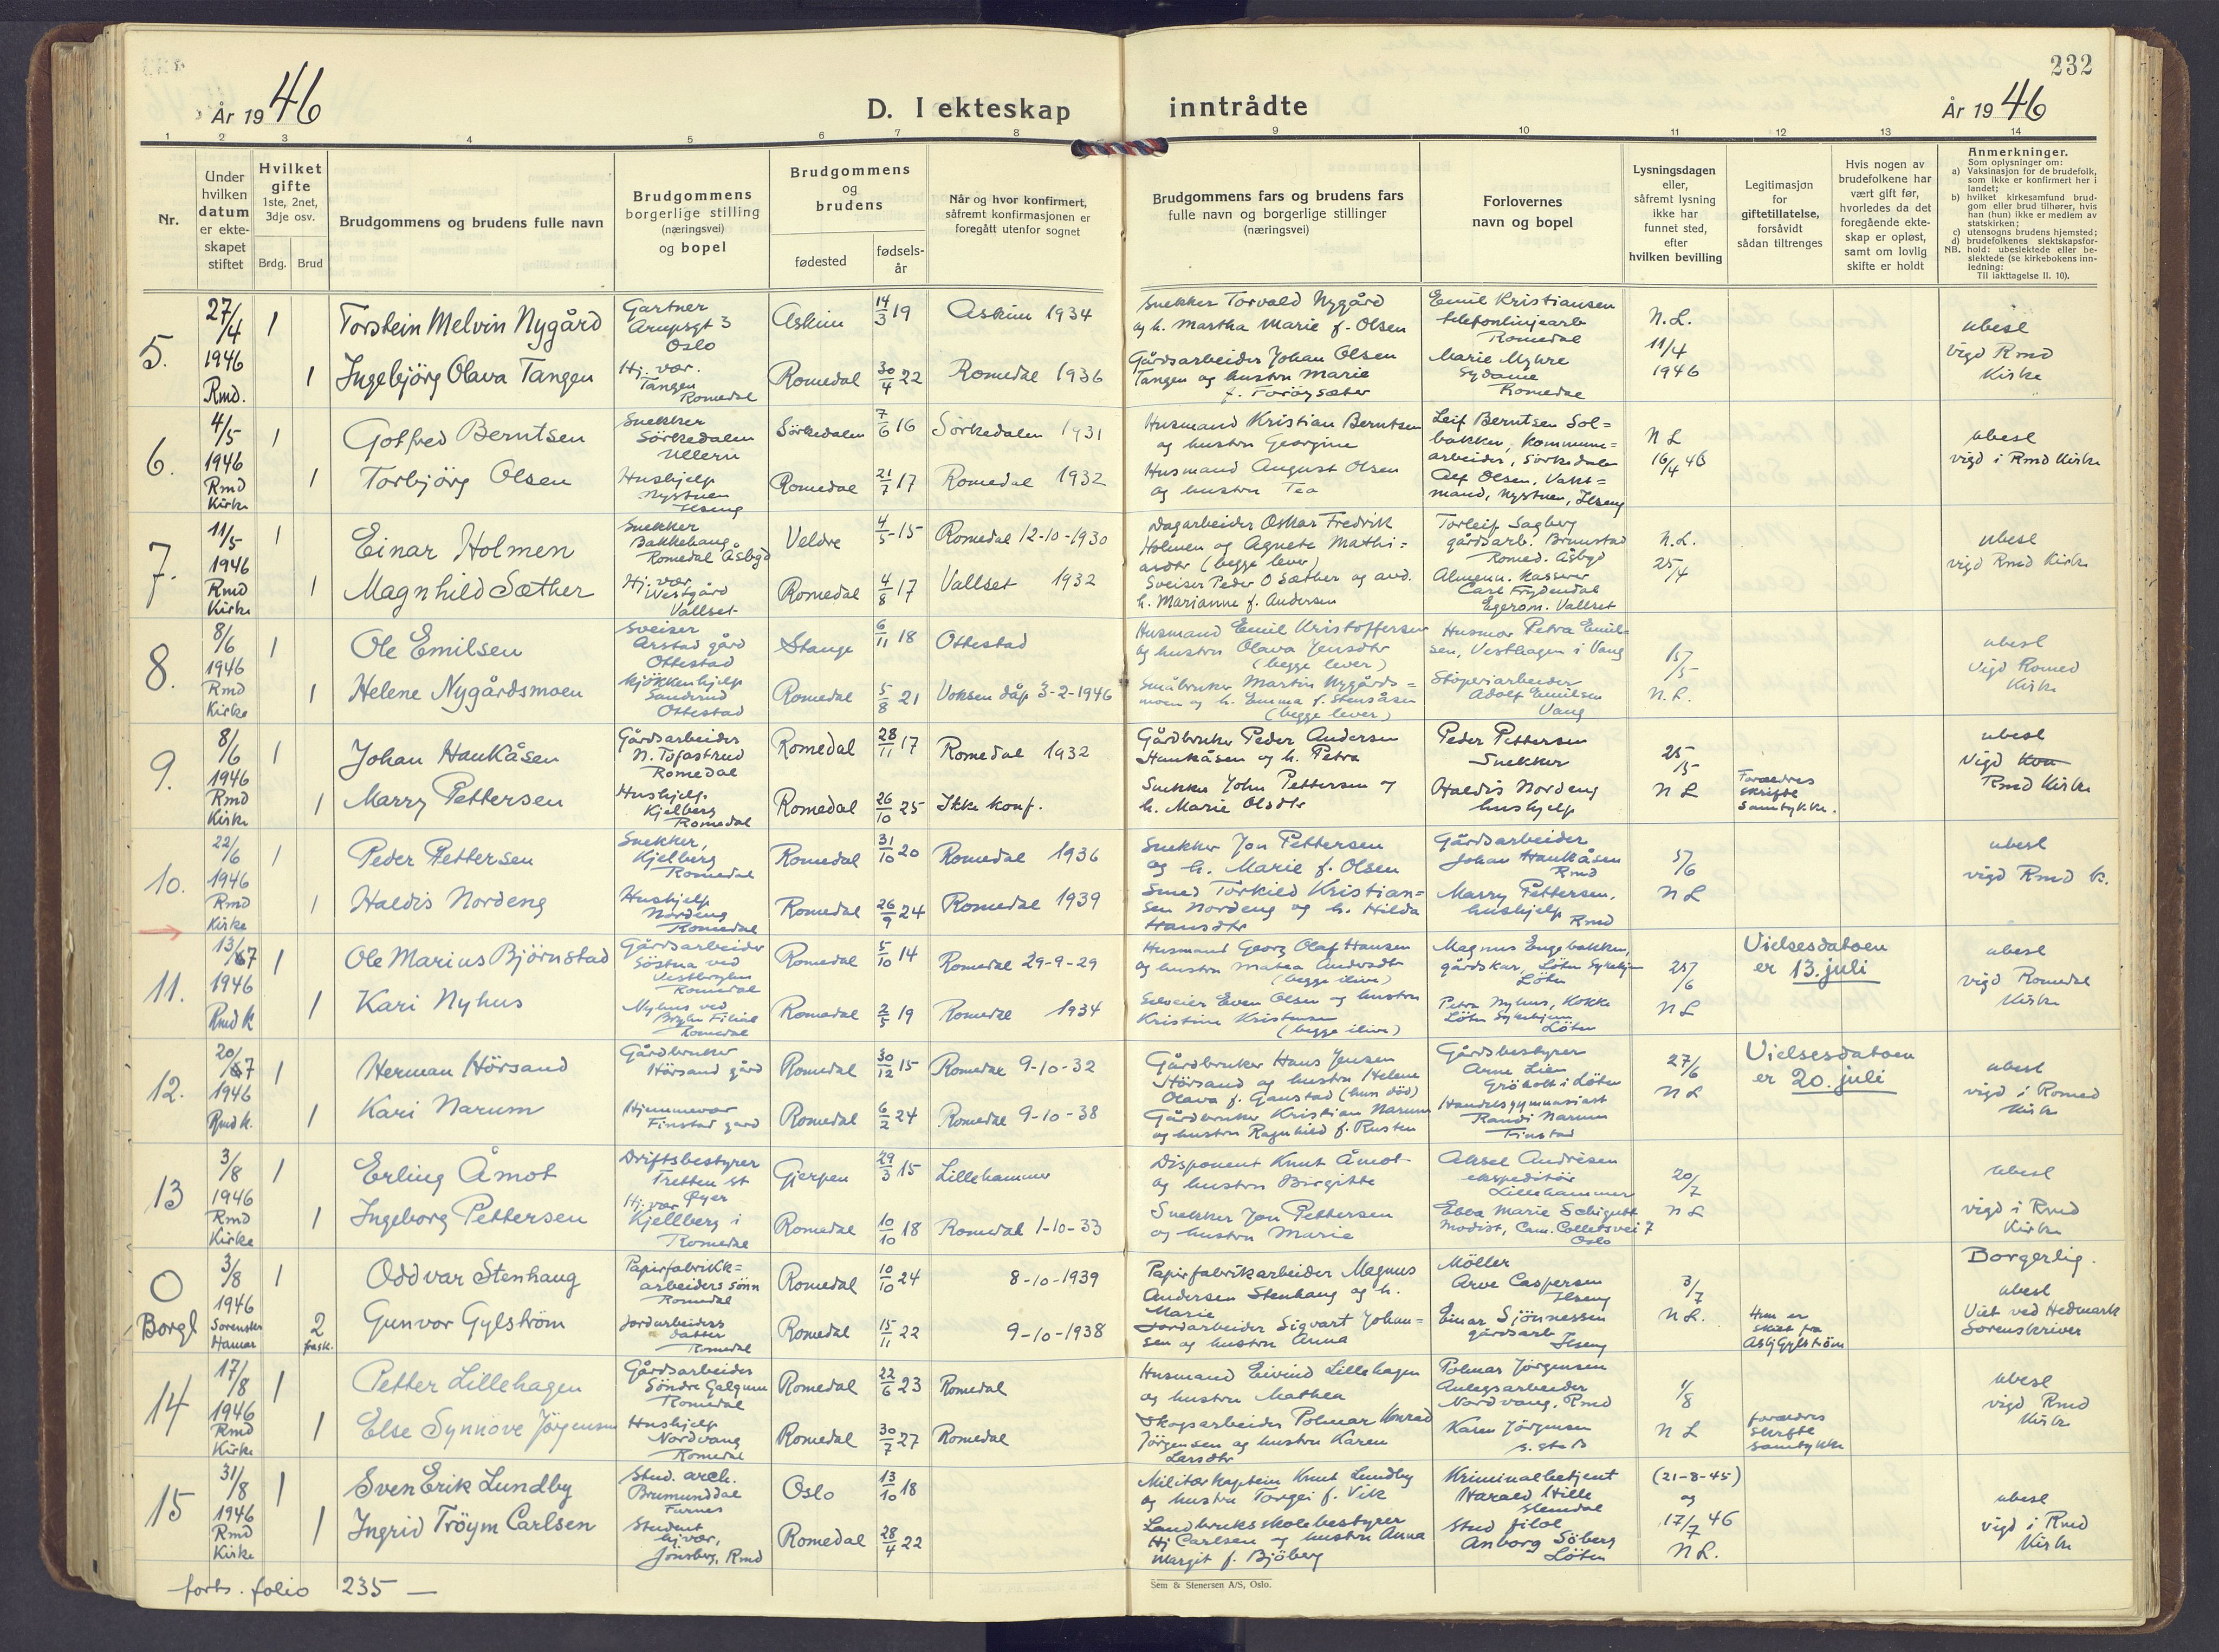 232
År 1946
D. I ekteskap inntrådte
År 1946
1 2 3 4 5 6 7 8 9 10 11 12 13 14
Nr.
Under hvilken datum er ekteskapet stiftet
Hvilket gifte 1ste, 2net, 3dje osv.
Brdg.
Brud
Brudgommens og brudens fulle navn
Brudgommens borgerlige stilling (næringsvei) og bopel
Brudgommens og brudens
fødested
fødselsår
Når og hvor konfirmert, såfremt konfirmasjonen er foregått utenfor sognet
Brudgommens fars og brudens fars fulle navn og borgerlige stillinger (næringsvei)
Forlovernes navn og bopel
Lysningsdagen eller, såfremt lysning ikke har funnet sted, efter hvilken bevilling
Legitimasjon for giftetillatelse, forsåvidt sådan tiltrenges
Hvis nogen av brudefolkene har vært gift før, hvorledes da det foregående ekteskap er opløst, samt om lovlig skifte er holdt
Anmerkninger.
Som oplysninger om:
a) Vaksinasjon for de brudefolk, som ikke er konfirmert her i landet;
b) hvilket kirkesamfund brudgom eller brud tilhører, hvis han (hun) ikke er medlem av statskirken;
c) utensogns brudens hjemsted;
d) brudefolkenes slektskapsforhold: ubeslektede eller beslektede (se kirkebokens innledning:
NB. Til iakttagelse II. 10).
5. 27/4 1946 Rmd.
1 Torstein Melvin Nygård
Gartner Arupsgt 3 Oslo
Askim 14/3 19 Askim 1934
Snekker Torvald Nygård og h. Martha Marie f. Olsen
Emil Kristiansen telefonlinjearb Romedal
N.L. 11/4 1946
ubesl vigd Rmd Kirke
1 Ingebjörg Olava Tangen
Hj. vær. Tangen Romedal
Romedal 30/4 22 Romedal 1936
Gårdsarbeider Johan Olsen Tangen og hustru Marie
Marie Myhre Sydame Romedal
6. 4/5 1946 Rmd Kirke
1 Gotfred Berntsen
Snekker Sörkedalen Ullern
Sörkedalen 7/6 16 Sörkedalen 1931
Husmand Kristian Berntsen og hustru Georgine
Leif Berntsen Solbakken, Kommunearbeider, Sörkedalen
N L 16/4 46
ubesl vigd i Rmd Kirke
1 Torbjörg Olsen
Hushjelp Nystuen Ilseng
Romedal 21/7 17 Romedal 1932
Husmand August Olsen og hustru Tea
Alf Olsen, Vaktmand, Nystuen, Ilseng
7. 11/5 1946 Rmd Kirke
1 Einar Holmen
Snekker Bakkehaug Romedal Åsbygd
Veldre 4/5 15 Romedal 12-10-1930
Dagarbeider Oskar Fredrik Holmen og Agnete Mathiasdtr (begge lever)
Torleif Sagberg gårdsarb. Brunstad Romed. Åsbygd
N.L. 25/4
ubesl vigd Rmd Kirke
1 Magnhild Sæther
Hj. vær, Vestgård Vallset
Romedal 4/8 17 Vallset 1932
Sveiser Peder O Sæther og avd. h. Marianne f. Andersen
Almenn. Kasserer Carl Frydendal Vallset
8. 8/6 1946 Rmd Kirke
1 Ole Emilsen
Sveiser Arstad gård Ottestad
Stange 6/11 18 Ottestad
Husmand Emil Kristoffersen og hustru Olava Jensdtr (begge lever)
Husmor Petra Emilsen, Vesthagen i Vang
15/5 N.L.
ubesl Vigd Romed Kirke
1 Helene Nygårdsmoen
Kjökkenhjelp Sanderud Ottestad
Romedal 5/8 21 Voksen dåp 3-2-1946
Småbruker Martin Nygårdsmoen og h. Emma f. Stensåsen (begge lever)
Støperiarbeider Adolf Emilsen Vang
9. 8/6 1946 Rmd Kirke
1 Johan Haukåsen
Gårdsarbeider N. Tofastrud Romedal
Romedal 28/11 17 Romedal 1932
Gårdbruker Peder Andersen Haukåsen og h. Petra
Peder Pettersen Snekker
25/5 N L
ubesl Vigd Rmd Kirke
1 Marry Pettersen
Hushjelp. Kjelberg Romedal
Romedal 26/10 25 Ikke konf.
Snekker John Pettersen og h. Marie Olsdtr
Haldis Nordeng hushjelp
Foreldres skriftl samtykke.
10. 22/6 1946 Rmd Kirke
1 Peder Pettersen
Snekker, Kjelberg Romedal
Romedal 31/10 20 Romedal 1936
Snekker Jon Pettersen og h. Marie f. Olsen
Gårdsarbeider Johan Haukåsen Rmd
5/6 N L
ubesl vigd Rmd k.
1 Haldis Nordeng
Hushjelp Nordeng Romedal
Romedal 26/9 24 Romedal 1939
Smed Torkild Kristiansen Nordeng og h. Hilda Hansdtr
Marry Pettersen, hushjelp Rmd
11. 13/7 1946 Rmd k
1 Ole Marius Björnstad
Gårdsarbeider Söstua ved Romedal
Romedal 5/10 14 Romedal 29-9-29
Husmand Georg Olaf Hansen og hustru Matea Andersdtr (begge ilive)
Magnus Engebakken, gårdskar, Löten Sykehjem Löten
25/6 N L
Vielsesdatoen er 13. juli
ubesl vigd Romedal Kirke
1 Kari Nyhus
Nyhus ved Filial Romedal
Romedal 2/5 19 Romedal 1934
Selveier Even Olsen og hustru Kristine Kristensen (begge ilive)
Petra Nyhus, Kokke Löten Sykehjem Löten
12. 20/7 1946 Rmd k.
1 Herman Hörsand
Gårdbruker Hörsand gård
Romedal 30/12 15 Romedal 9-10-32
Gårdbruker Hans Jensen Hörsand og hustru Helene Olava f. Gaustad (hun död)
Gårdsbestyrer Arne Lien Gröholt i Löten
27/6 N L
Vielsesdatoen er 20. juli
ubesl vigd i Romed Kirke
1 Kari Narum
Hjemmevær Finstad gård
Romedal 6/2 24 Romedal 9-10-38
Gårdbruker Kristian Narum og hustru Ragnhild f. Rusten
Handelsgymnasiast Randi Narum Finstad
13 3/8 1946 Rmd Kirke
1 Erling Åmot
Driftsbestyrer Tretten st Øyer
Gjerpen 29/3 15 Lillehammer
Disponent Knut Åmot og hustru Birgitte
Aksel Andrésen ekspeditör Lillehammer
20/7 N L
ubesl vigd i Rmd Kirke
1 Ingeborg Pettersen
Hj. vær Kjellberg i Romedal
Romedal 10/10 18 Romedal 1-10-33
Snekker Jon Pettersen og hustru Marie
Ebba Marie Modist, Cam. Colletsvei 7 Oslo
0 Borgl 3/8 1946 Sorenskr Hamar
1 Oddvar Stenhaug
Papirfabrikkarbeiders sönn Romedal
Romedal 10/10 24 8-10-1939
Papirfabrikarbeider Magnus Andersen Stenhaug og h. Marie
Möller Arve Caspersen Ilseng
3/7 N L.
Borgerlig. ubesl Viet ved Hedmark Sorenskriver
2 frask. Gunvor Gylström
Jordarbeiders datter Romedal
Romedal 15/11 22 9-10-1938
Jordarbeider Sigvart Johansen og hustru Anna
Einar Sjönnessen gårdsarb Ilseng
Hun er skilt fra Asbj Gylström
14 17/8 1946 Rmd Kirke
1 Petter Lillehagen
Gårdsarbeider Söndre Galgum Romedal
Romedal 22/6 23 Romedal
Husmand Eivind Lillehagen og hustru Mathea
Polmar Jörgensen Anlegsarbeider Nordvang, Rmd
1/8 N L
ubesl vigd Rmd Kirke
1 Else Synnöve Jörgensen
Hushjelp Nordvang Romedal
Romedal 30/7 27 Romedal
Skogsarbeider Polmar Konrad Jörgensen og hustru Karen Larsdtr
Karen Jörgensen s. sted
foreldres skriftl samtykke
15 31/8 1946 Rmd Kirke
1 Sven Erik Lundby
Stud. arch. Brumunddal Furnes
Oslo 13/10 18
Militærkaptein Knut Lundby og hustru Torgei f. Vik
Kriminalbetjent Harald Hille Slemdal
(21-8-45) og 17/7 46 N L.
ubesl vigd i Rmd Kirke
1 Ingrid Tröym Carlsen
Student hj.vær, Jönsberg, Rmd
Romedal 28/4 22
Landbruksskolebestyrer Hj Carlsen og hustru Anna Margit f. Bjöberg
Stud filol Anborg Söberg Löten
forts. folio 235 —
Sem & Stenersen A/S, Oslo.